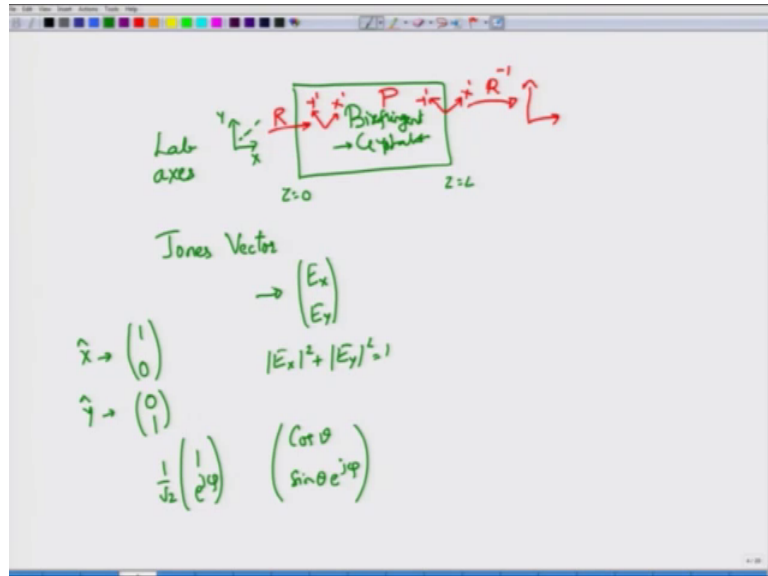 File Edit View Insert Actions Tools Help
Lab
axes
Y
X
R
Y' X'
P
Birefringent
→ Crystal
Y' X'
R⁻¹
Z=0
Z=L
Jones Vector
→ (Ex
Ey)
|Ex|² + |Ey|² = 1
x̂ → (1
0)
ŷ → (0
1)
1/√2 (1
e^jφ)
(Cos θ
Sin θ e^jφ)